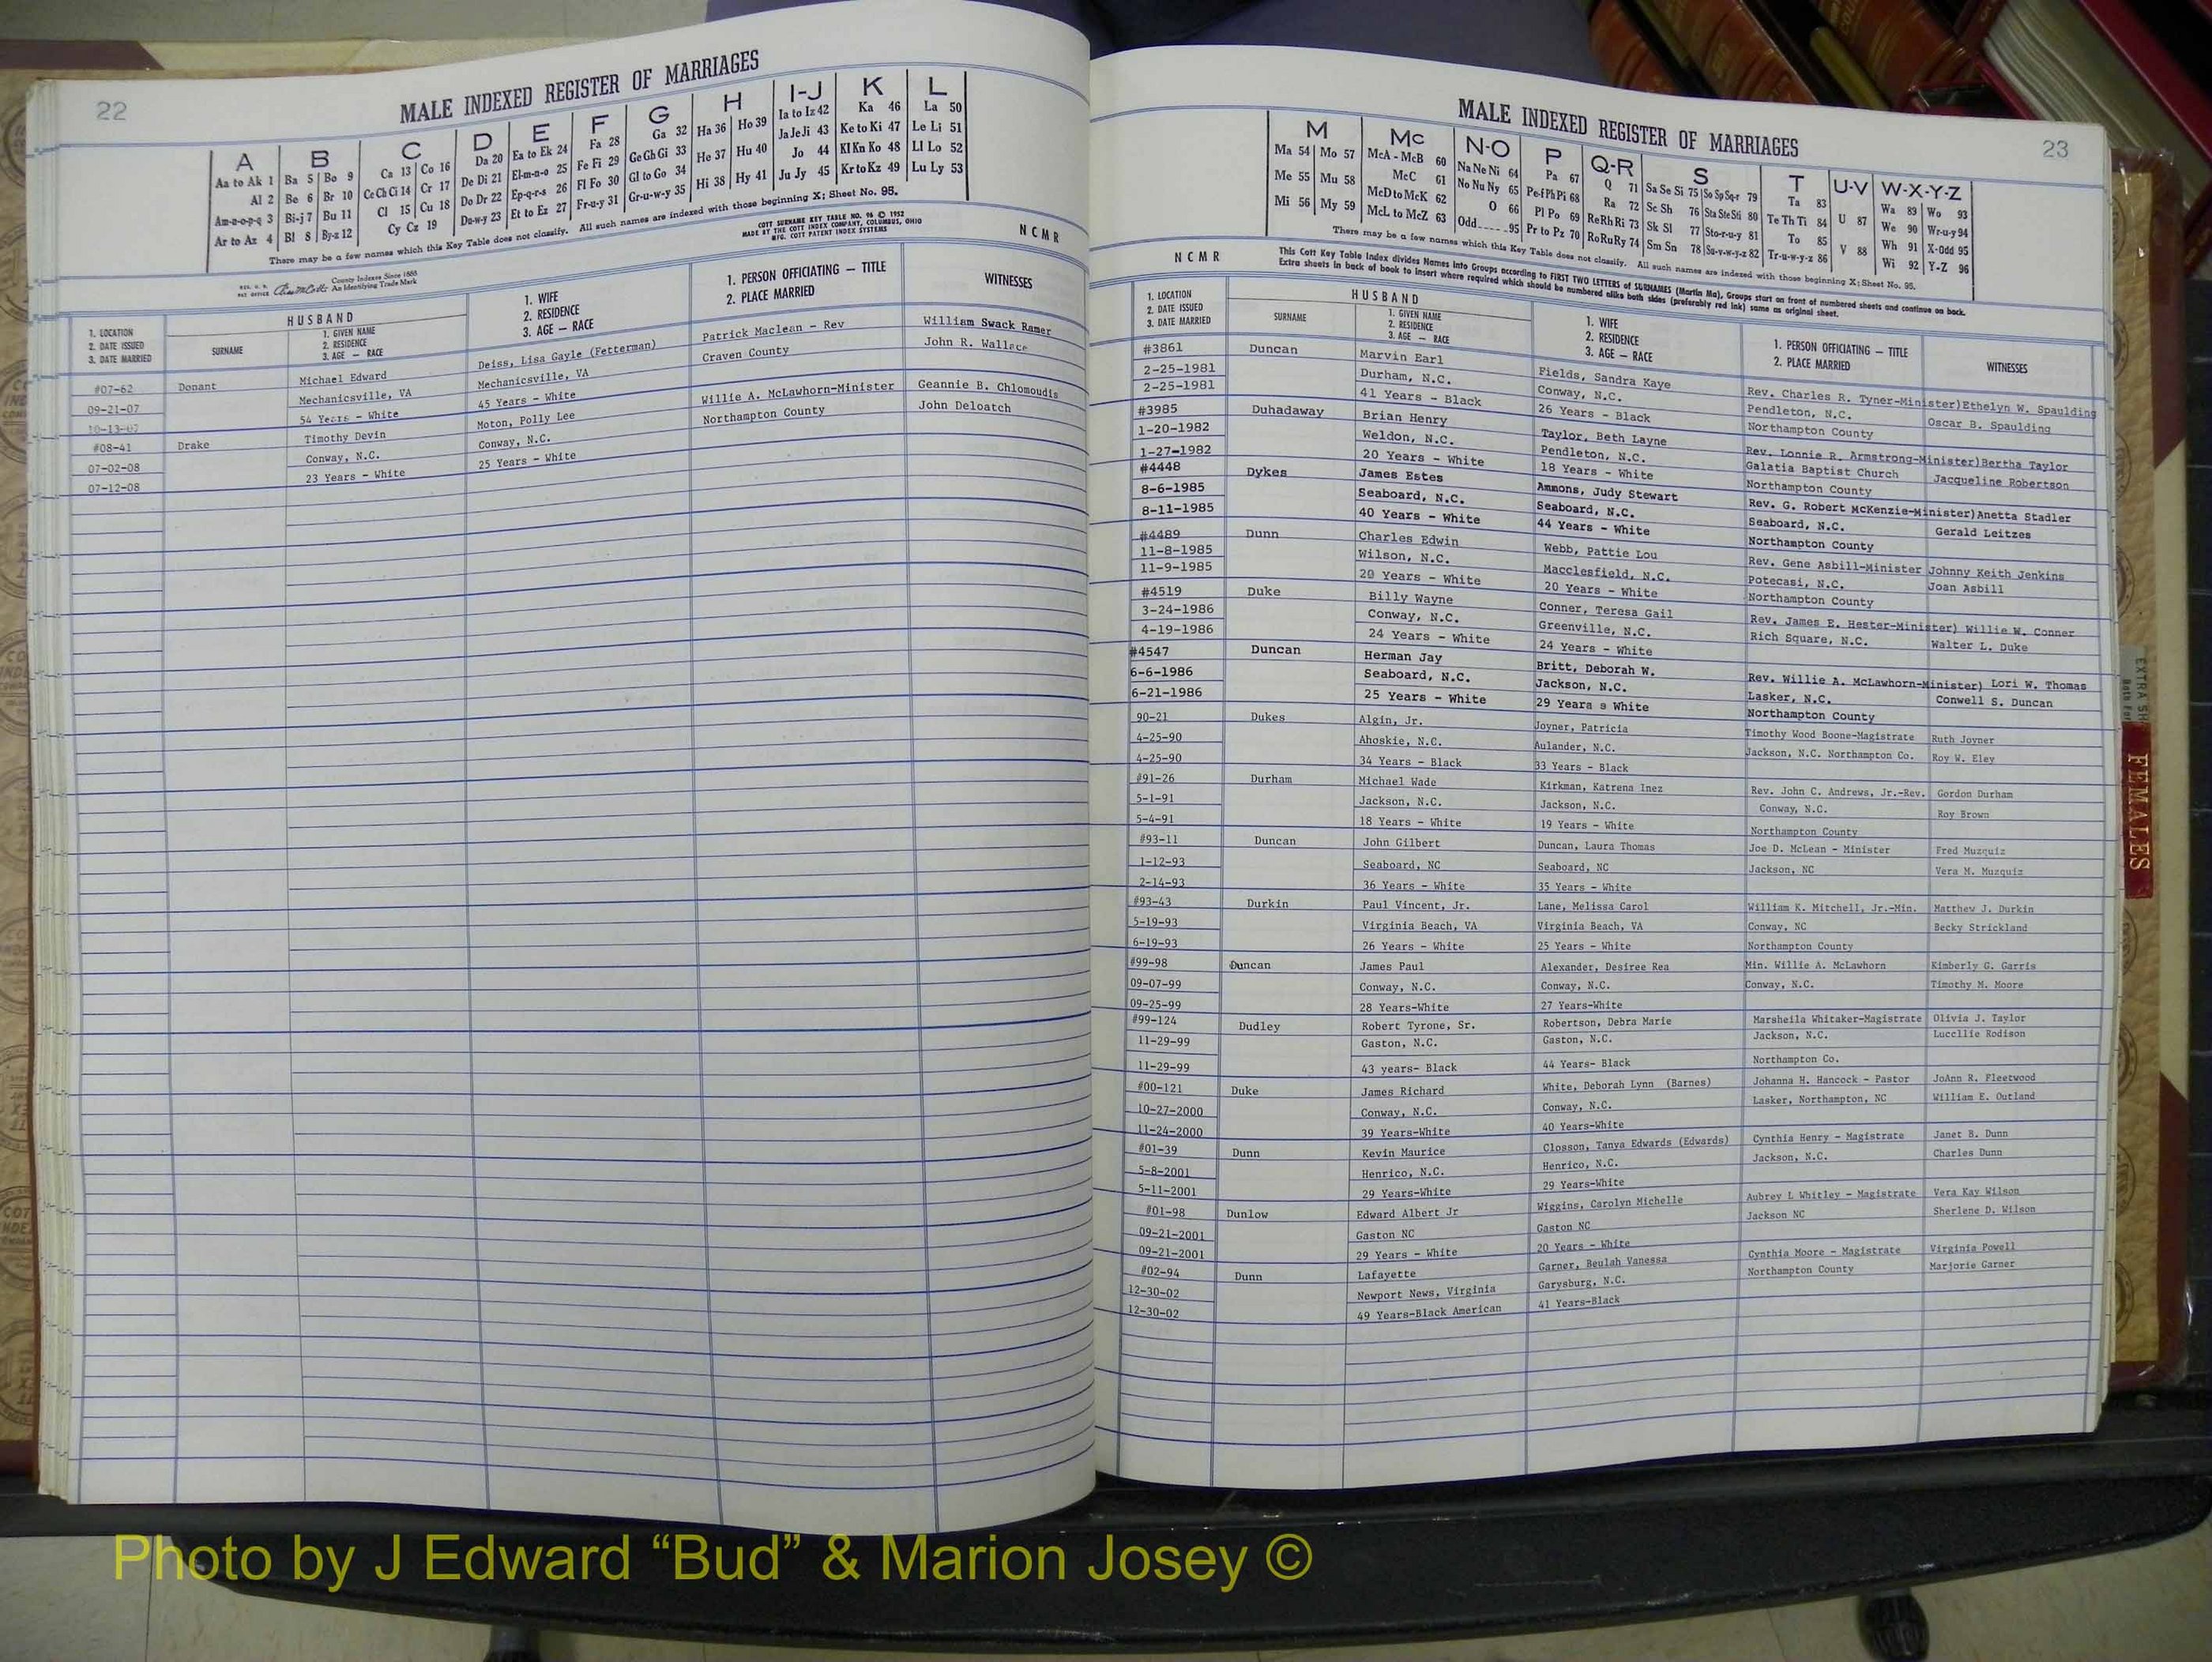 22
MALE INDEXED REGISTER OF MARRIAGES
A B C D E F G H I-J K L
Aa to Ak 1 Ba 5 Bo 9 Ca 13 Co 16 Da 20 Ea to Ek 24 Fa 28 Ga 32 Ha 36 Ho 39 Ia to Iz 42 Ka 46 La 50
Al 2 Be 6 Br 10 Ce Ch Ci 14 Cr 17 De Di 21 El-m-n-o 25 Fe Fi 29 Ge Gh Gi 33 He 37 Hu 40 Ja Je Ji 43 Ke to Ki 47 Le Li 51
Am-n-o-p-q 3 Bi-j 7 Bu 11 Cl 15 Cu 18 Do Dr 22 Ep-q-r-s 26 Fl Fo 30 Gl to Go 34 Hi 38 Hy 41 Jo 44 Kl Kn Ko 48 Ll Lo 52
Ar to Az 4 Bl 8 By-z 12 Cy Cz 19 Du-w-y 23 Et to Ez 27 Fr-u-y 31 Gr-u-w-y 35 Ju Jy 45 Kr to Kz 49 Lu Ly 53
There may be a few names which this Key Table does not classify. All such names are indexed with those beginning X; Sheet No. 95.
COTT SURNAME KEY TABLE NO. 96 © 1952
MADE BY THE COTT INDEX COMPANY, COLUMBUS, OHIO
MFG. COTT PATENT INDEX SYSTEMS
N C M R
County Indexes Since 1888
An Identifying Trade Mark
1. LOCATION
2. DATE ISSUED
3. DATE MARRIED
HUSBAND
SURNAME
1. GIVEN NAME
2. RESIDENCE
3. AGE — RACE
1. WIFE
2. RESIDENCE
3. AGE — RACE
1. PERSON OFFICIATING — TITLE
2. PLACE MARRIED
WITNESSES
#07-62 Donant Michael Edward Deiss, Lisa Gayle (Fetterman) Patrick Maclean - Rev William Swack Ramer
09-21-07 Mechanicsville, VA Mechanicsville, VA Craven County John R. Wallace
10-13-07 54 Years - White 45 Years - White
#08-41 Drake Timothy Devin Moton, Polly Lee Willie A. McLawhorn-Minister Geannie B. Chlomoudis
07-02-08 Conway, N.C. Conway, N.C. Northampton County John Deloatch
07-12-08 23 Years - White 25 Years - White
23
MALE INDEXED REGISTER OF MARRIAGES
M Mc N-O P Q-R S T U-V W-X-Y-Z
Ma 54 Mo 57 McA - McB 60 Na Ne Ni 64 Pa 67 Q 71 Sa Se Si 75 So Sp Sq-r 79 Ta 83 U 87 Wa 89 Wo 93
Me 55 Mu 58 McC 61 No Nu Ny 65 Pe-f Ph Pi 68 Ra 72 Sc Sh 76 Sta Ste Sti 80 Te Th Ti 84 V 88 We 90 Wr-u-y 94
Mi 56 My 59 McD to McK 62 O 66 Pl Po 69 Re Rh Ri 73 Sk Sl 77 Sto-r-u-y 81 To 85 Wh 91 X-Odd 95
McL to McZ 63 Odd 95 Pr to Pz 70 Ro Ru Ry 74 Sm Sn 78 Su-v-w-y-z 82 Tr-u-w-y-z 86 Wi 92 Y-Z 96
There may be a few names which this Key Table does not classify. All such names are indexed with those beginning X; Sheet No. 95.
N C M R
This Cott Key Table Index divides Names into Groups according to FIRST TWO LETTERS of SURNAMES (Martin Ma), Groups start on front of numbered sheets and continue on back.
Extra sheets in back of book to insert where required which should be numbered alike both sides (preferably red ink) same as original sheet.
1. LOCATION
2. DATE ISSUED
3. DATE MARRIED
HUSBAND
SURNAME
1. GIVEN NAME
2. RESIDENCE
3. AGE — RACE
1. WIFE
2. RESIDENCE
3. AGE — RACE
1. PERSON OFFICIATING — TITLE
2. PLACE MARRIED
WITNESSES
#3861 Duncan Marvin Earl Fields, Sandra Kaye Rev. Charles R. Tyner-Minister)Ethelyn W. Spaulding
2-25-1981 Durham, N.C. Conway, N.C. Pendleton, N.C. Oscar B. Spaulding
2-25-1981 41 Years - Black 26 Years - Black Northampton County
#3985 Duhadaway Brian Henry Taylor, Beth Layne Rev. Lonnie R. Armstrong-Minister)Bertha Taylor
1-20-1982 Weldon, N.C. Pendleton, N.C. Galatia Baptist Church Jacqueline Robertson
1-27-1982 20 Years - White 18 Years - White Northampton County
#4448 Dykes James Estes Ammons, Judy Stewart Rev. G. Robert McKenzie-Minister)Anetta Stadler
8-6-1985 Seaboard, N.C. Seaboard, N.C. Seaboard, N.C. Gerald Leitzes
8-11-1985 40 Years - White 44 Years - White Northampton County
#4489 Dunn Charles Edwin Webb, Pattie Lou Rev. Gene Asbill-Minister Johnny Keith Jenkins
11-8-1985 Wilson, N.C. Macclesfield, N.C. Potecasi, N.C. Joan Asbill
11-9-1985 20 Years - White 20 Years - White Northampton County
#4519 Duke Billy Wayne Conner, Teresa Gail Rev. James E. Hester-Minister) Willie W. Conner
3-24-1986 Conway, N.C. Greenville, N.C. Rich Square, N.C. Walter L. Duke
4-19-1986 24 Years - White 24 Years - White
#4547 Duncan Herman Jay Britt, Deborah W. Rev. Willie A. McLawhorn-Minister) Lori W. Thomas
6-6-1986 Seaboard, N.C. Jackson, N.C. Lasker, N.C. Conwell S. Duncan
6-21-1986 25 Years - White 29 Years s White Northampton County
90-21 Dukes Algin, Jr. Joyner, Patricia Timothy Wood Boone-Magistrate Ruth Joyner
4-25-90 Ahoskie, N.C. Aulander, N.C. Jackson, N.C. Northampton Co. Roy W. Eley
4-25-90 34 Years - Black 33 Years - Black
#91-26 Durham Michael Wade Kirkman, Katrena Inez Rev. John C. Andrews, Jr.-Rev. Gordon Durham
5-1-91 Jackson, N.C. Jackson, N.C. Conway, N.C. Roy Brown
5-4-91 18 Years - White 19 Years - White Northampton County
#93-11 Duncan John Gilbert Duncan, Laura Thomas Joe D. McLean - Minister Fred Muzquiz
1-12-93 Seaboard, NC Seaboard, NC Jackson, NC Vera M. Muzquiz
2-14-93 36 Years - White 35 Years - White
#93-43 Durkin Paul Vincent, Jr. Lane, Melissa Carol William K. Mitchell, Jr.-Min. Matthew J. Durkin
5-19-93 Virginia Beach, VA Virginia Beach, VA Conway, NC Becky Strickland
6-19-93 26 Years - White 25 Years - White Northampton County
#99-98 Duncan James Paul Alexander, Desiree Rea Min. Willie A. McLawhorn Kimberly G. Garris
09-07-99 Conway, N.C. Conway, N.C. Conway, N.C. Timothy M. Moore
09-25-99 28 Years-White 27 Years-White
#99-124 Dudley Robert Tyrone, Sr. Robertson, Debra Marie Marsheila Whitaker-Magistrate Olivia J. Taylor
11-29-99 Gaston, N.C. Gaston, N.C. Jackson, N.C. Lucellie Rodison
11-29-99 43 years- Black 44 Years- Black Northampton Co.
#00-121 Duke James Richard White, Deborah Lynn (Barnes) Johanna H. Hancock - Pastor JoAnn R. Fleetwood
10-27-2000 Conway, N.C. Conway, N.C. Lasker, Northampton, NC William E. Outland
11-24-2000 39 Years-White 40 Years-White
#01-39 Dunn Kevin Maurice Closson, Tanya Edwards (Edwards) Cynthia Henry - Magistrate Janet B. Dunn
5-8-2001 Henrico, N.C. Henrico, N.C. Jackson, N.C. Charles Dunn
5-11-2001 29 Years-White 29 Years-White
#01-98 Dunlow Edward Albert Jr Wiggins, Carolyn Michelle Aubrey L Whitley - Magistrate Vera Kay Wilson
09-21-2001 Gaston NC Gaston NC Jackson NC Sherlene D. Wilson
09-21-2001 29 Years - White 20 Years - White
#02-94 Dunn Lafayette Garner, Beulah Vanessa Cynthia Moore - Magistrate Virginia Powell
12-30-02 Newport News, Virginia Garysburg, N.C. Northampton County Marjorie Garner
12-30-02 49 Years-Black American 41 Years-Black
FEMALES
Photo by J Edward “Bud” & Marion Josey ©